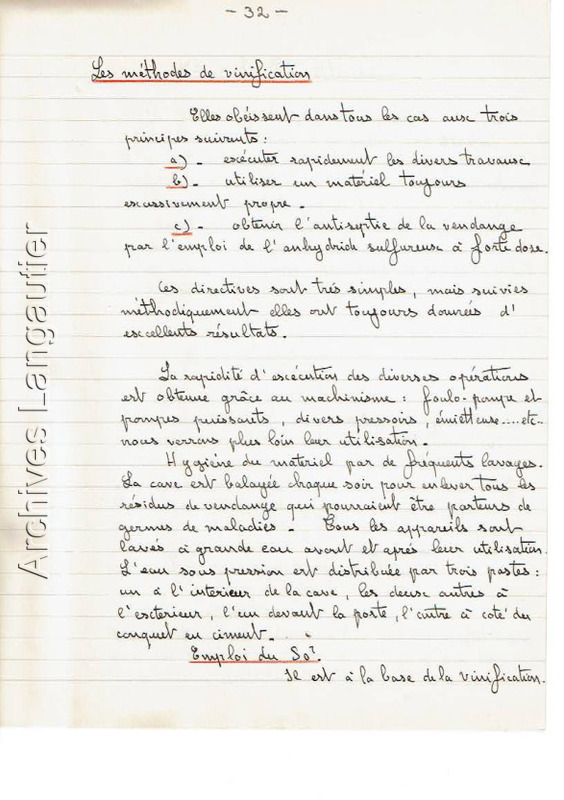 - 32 -
Les méthodes de vinification
Elles obéissent dans tous les cas aux trois
principes suivants :
a) - exécuter rapidement les divers travaux
b) - utiliser un matériel toujours
excessivement propre -
c) - obtenir l'antiseptie de la vendange
par l'emploi de l'anhydride sulfureux à forte dose.
Ces directives sont très simples, mais suivies
méthodiquement elles ont toujours données d'
excellents résultats.
La rapidité d'exécution des diverses opérations
est obtenue grâce au machinisme : foulo-pompe et
pompes puissants, divers pressoirs, émietteuse....etc..
nous verrons plus loin leur utilisation -
Hygiène du matériel par de fréquents lavages.
La cave est balayée chaque soir pour enlever tous les
résidus de vendange qui pourraient être porteurs de
germes de maladies - Tous les appareils sont
lavés à grande eau avant et après leur utilisation.
L'eau sous pression est distribuée par trois postes :
un à l'intérieur de la cave, les deux autres à
l'extérieur, l'un devant la porte, l'autre à coté du
conquet en ciment -
Emploi du So².
Il est à la base de la vinification.
Archives Langautier